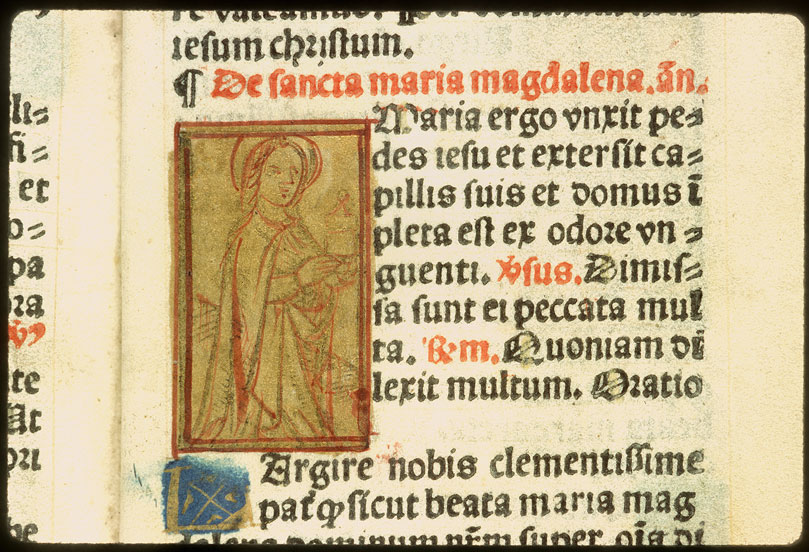 iesum christum.
¶ De sancta maria magdalena. añ.
Maria ergo vnxit pe=
des iesu et extersit ca=
pillis suis et domus ī
pleta est ex odore vn=
guenti. v̾sus. Dimis=
sa sunt ei peccata mul
ta. Rm. Quoniam di
lexit multum. Oratio
LArgire nobis clementissime
pat̾ ꝙ sicut beata maria mag
dalena dominum nr̄m super oīa di
li=
fi=
et
o=
pa
ora
te
At